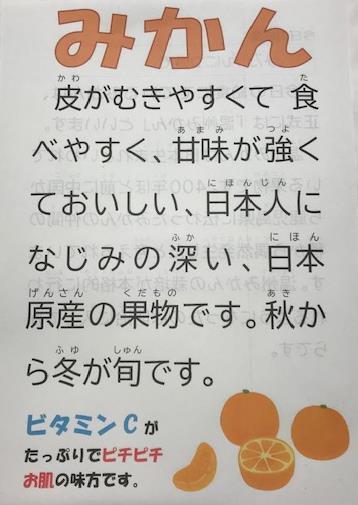 みかん
皮がむきやすくて食
べやすく、甘味が強く
ておいしい、日本人に
なじみの深い、日本
原産の果物です。秋か
ら冬が旬です。
ビタミンCが
たっぷりでピチピチ
お肌の味方です。